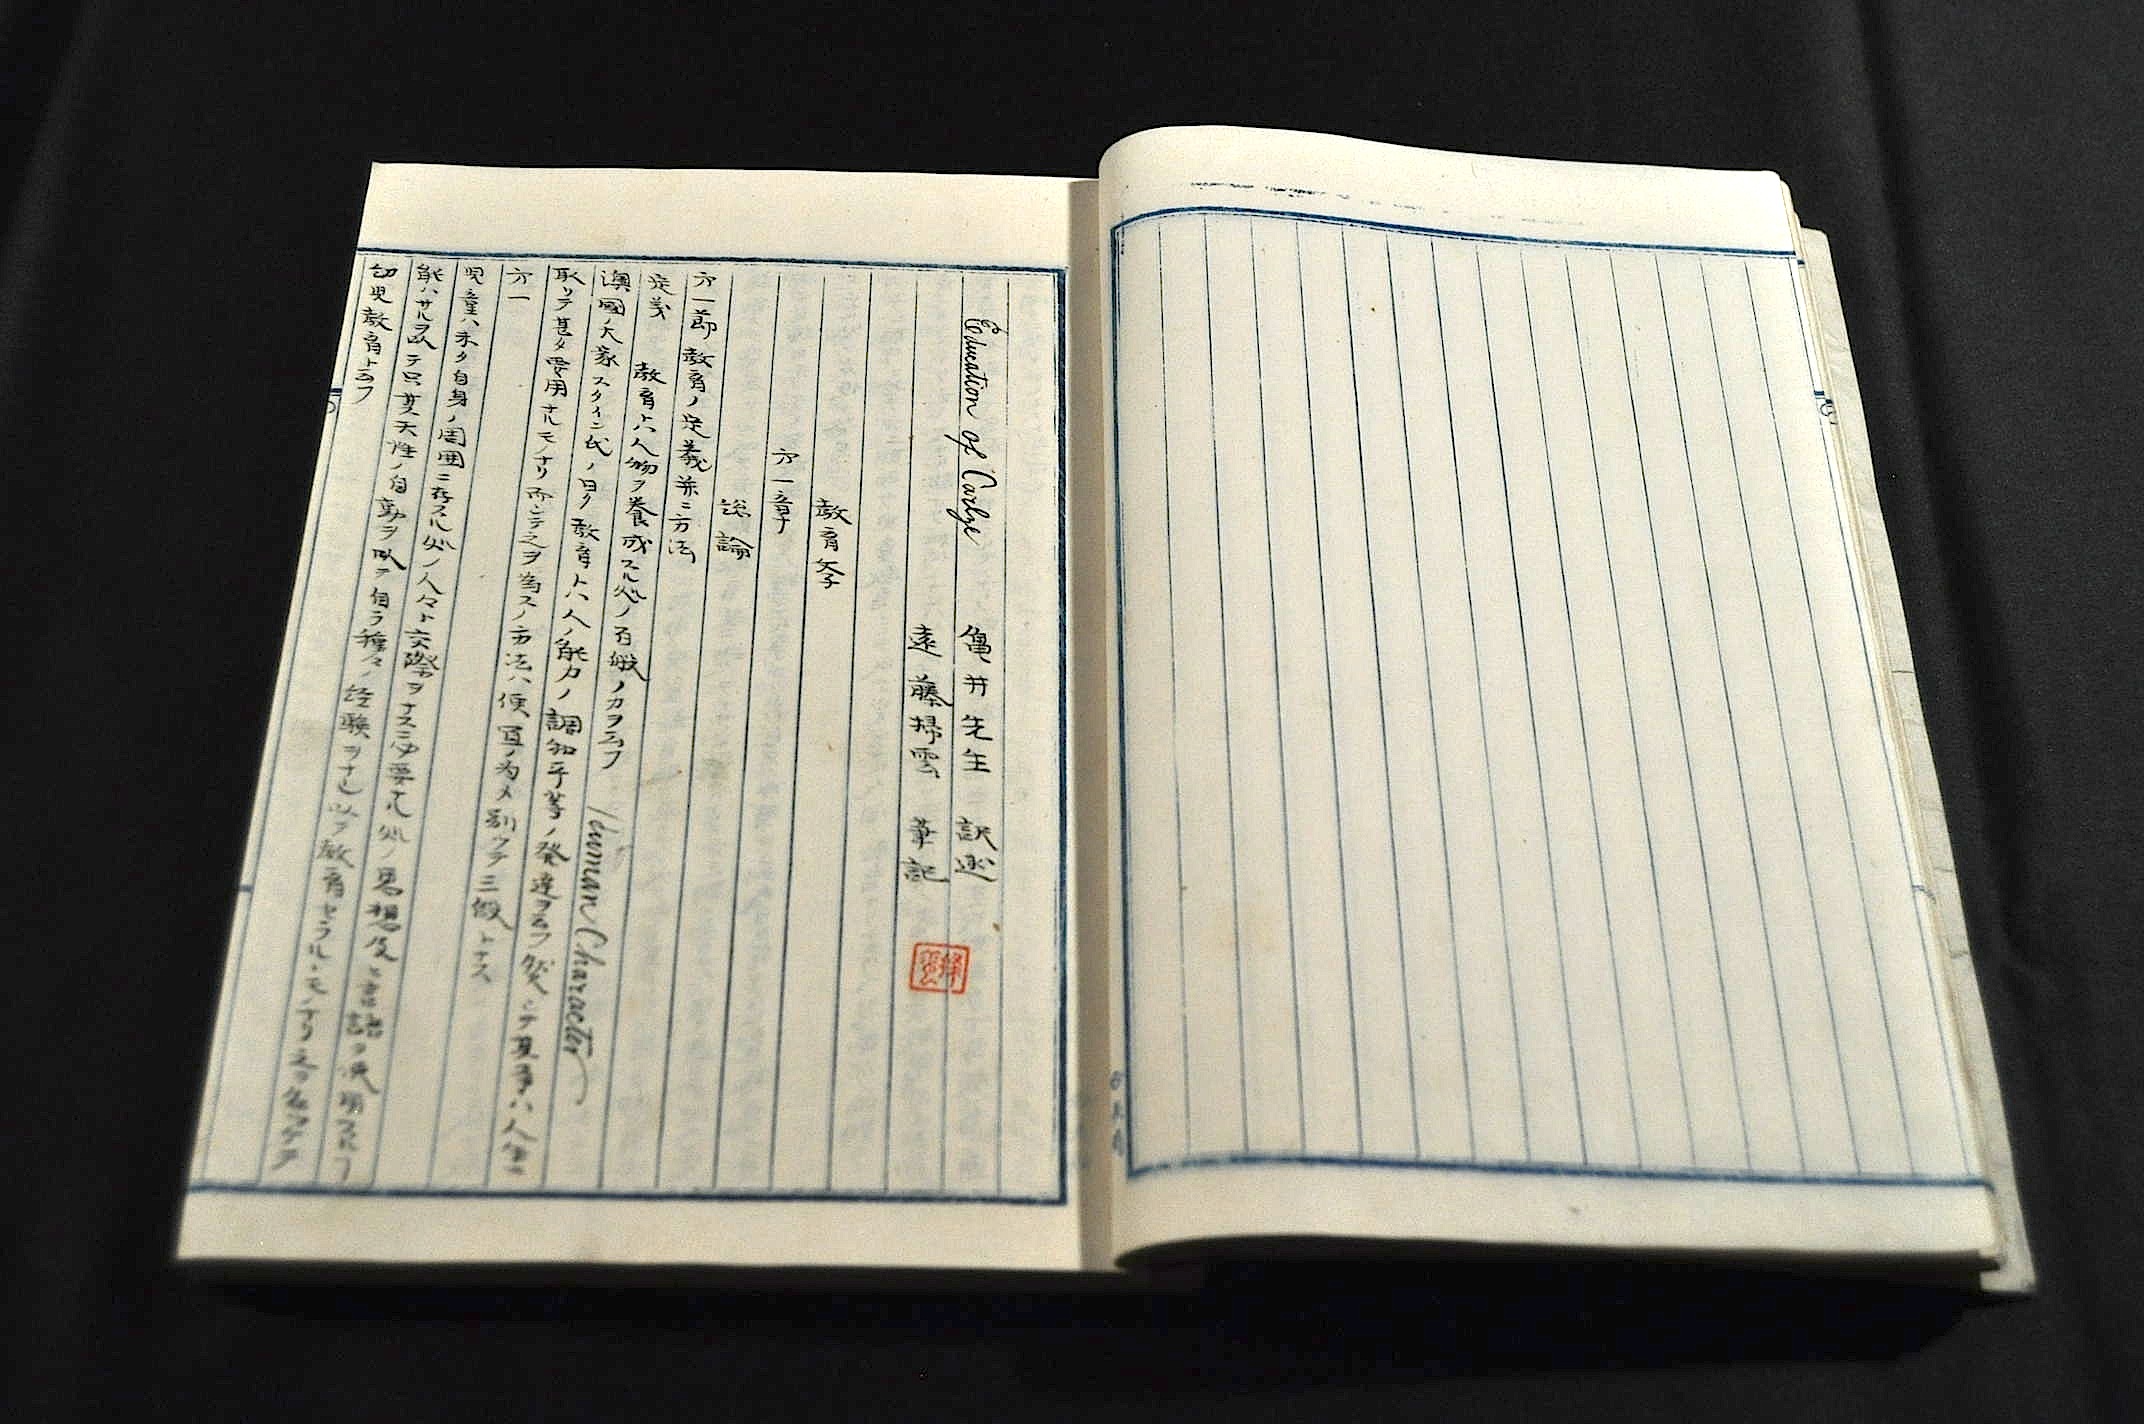 Education of Carlze 亀井先生 訳述
遠藤掃雲 筆記
教育学
方一章
総論
方一節 教育ノ定義並ニ方法
定義 教育トハ人物ヲ養成スル処ノ百般ノカヲ云フ Human Character
澳國ノ大家スタイン氏ノ曰ク教育トハ人ノ能力ノ調和平等ノ発達ヲ云フ然シテ其事ハ人生ニ
取リテ甚タ要用ナルモノナリ而シテ之ヲ為スノ方法ハ便宜ノ為メ別ツテ三段トナス
方一
児童ハ未タ自身ノ周囲ニ存スル処ノ人々ト交際ヲナスニ必要ナル処ノ思想及ヒ言語ヲ使用スル
能ハサルヲ以テ只其天性ノ自動ヲ以テ自ラ種々ノ経験ヲナシ以テ教育セラルヽモノナリ之ヲ名ツケテ
幼児教育ト云フ